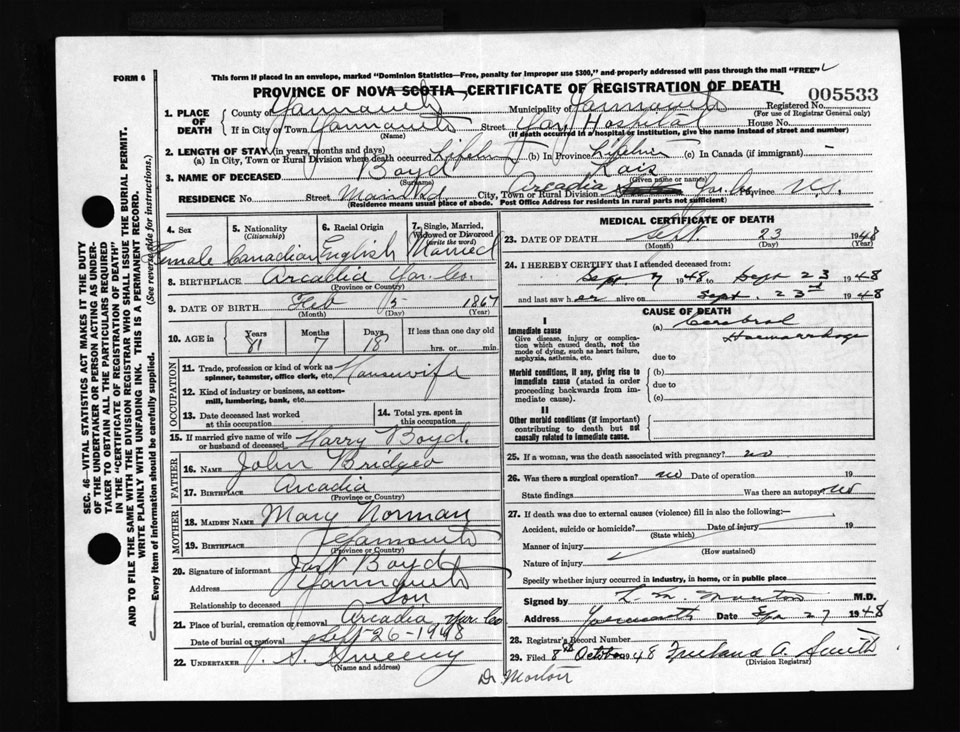 FORM 6
This form if placed in an envelope, marked "Dominion Statistics—Free, penalty for improper use $300," and properly addressed will pass through the mail "FREE"
PROVINCE OF NOVA SCOTIA—CERTIFICATE OF REGISTRATION OF DEATH
005533
1. PLACE OF DEATH
County of Yarmouth Municipality of Yarmouth Registered No.
(For use of Registrar General only)
If in City or Town Yarmouth Street Yar Hospital House No.
(Name) (If death occurred in a hospital or institution, give the name instead of street and number)
2. LENGTH OF STAY (in years, months and days)
(a) In City, Town or Rural Division where death occurred Lifetime (b) In Province Lifetime (c) In Canada (if immigrant) —
3. NAME OF DECEASED Boyd
(Surname) (Given name or names)
RESIDENCE No. Street Main Rd City, Town or Rural Division Arcadia Yar. Co. Province N.S.
(Residence means usual place of abode. Post Office Address for residents in rural parts not sufficient)
4. Sex Female
5. Nationality (Citizenship) Canadian
6. Racial Origin English
7. Single, Married, Widowed or Divorced (write the word) Married
8. BIRTHPLACE Arcadia Yar. Co.
(Province or Country)
9. DATE OF BIRTH Feb 5 1867
(Month) (Day) (Year)
10. AGE in Years 81 Months 7 Days 18 If less than one day old hrs. or min.
OCCUPATION
11. Trade, profession or kind of work as spinner, teamster, office clerk, etc. Housewife
12. Kind of industry or business, as cotton-mill, lumbering, bank, etc.
13. Date deceased last worked at this occupation
14. Total yrs. spent in this occupation
15. If married give name of wife or husband of deceased Harry Boyd.
FATHER
16. NAME John Bridgeo
17. BIRTHPLACE Arcadia
(Province or Country)
MOTHER
18. MAIDEN NAME Mary Norman
19. BIRTHPLACE Yarmouth
(Province or Country)
20. Signature of informant Boyd
Address Yarmouth
Relationship to deceased Son
21. Place of burial, cremation or removal Arcadia, Yar. Co
Date of burial or removal Sept 26-1948
22. UNDERTAKER S. Sweeny
(Name and address)
Dr Morton
MEDICAL CERTIFICATE OF DEATH
23. DATE OF DEATH Sept. 23 1948
(Month) (Day) (Year)
24. I HEREBY CERTIFY that I attended deceased from:
Sept 7 1948 to Sept 23 1948
and last saw her alive on Sept. 23rd 1948
CAUSE OF DEATH
I
Immediate cause
Give disease, injury or complication which caused death, not the mode of dying, such as heart failure, asphyxia, asthenia, etc.
(a) Cerebral
Haemorrhage
due to
Morbid conditions, if any, giving rise to immediate cause (stated in order proceeding backwards from immediate cause).
(b)
due to
(c)
II
Other morbid conditions (if important) contributing to death but not causally related to immediate cause.
25. If a woman, was the death associated with pregnancy? no
26. Was there a surgical operation? no Date of operation 19
State findings Was there an autopsy? no
27. If death was due to external causes (violence) fill in also the following:—
Accident, suicide or homicide? Date of injury 19
(State which)
Manner of injury
(How sustained)
Nature of injury
Specify whether injury occurred in industry, in home, or in public place
Signed by M.D.
Address Yarmouth Date Sep 27 1948
28. Registrar's Record Number
29. Filed 8th October 1948 A. Smith
(Division Registrar)
SEC. 46—VITAL STATISTICS ACT MAKES IT THE DUTY
OF THE UNDERTAKER OR PERSON ACTING AS UNDERTAKER TO OBTAIN ALL THE PARTICULARS REQUIRED
IN THE "CERTIFICATE OF REGISTRATION OF DEATH"
AND TO FILE THE SAME WITH THE DIVISION REGISTRAR WHO SHALL ISSUE THE BURIAL PERMIT.
WRITE PLAINLY WITH UNFADING INK. THIS IS A PERMANENT RECORD.
Every item of information should be carefully supplied. (See reverse side for instructions.)